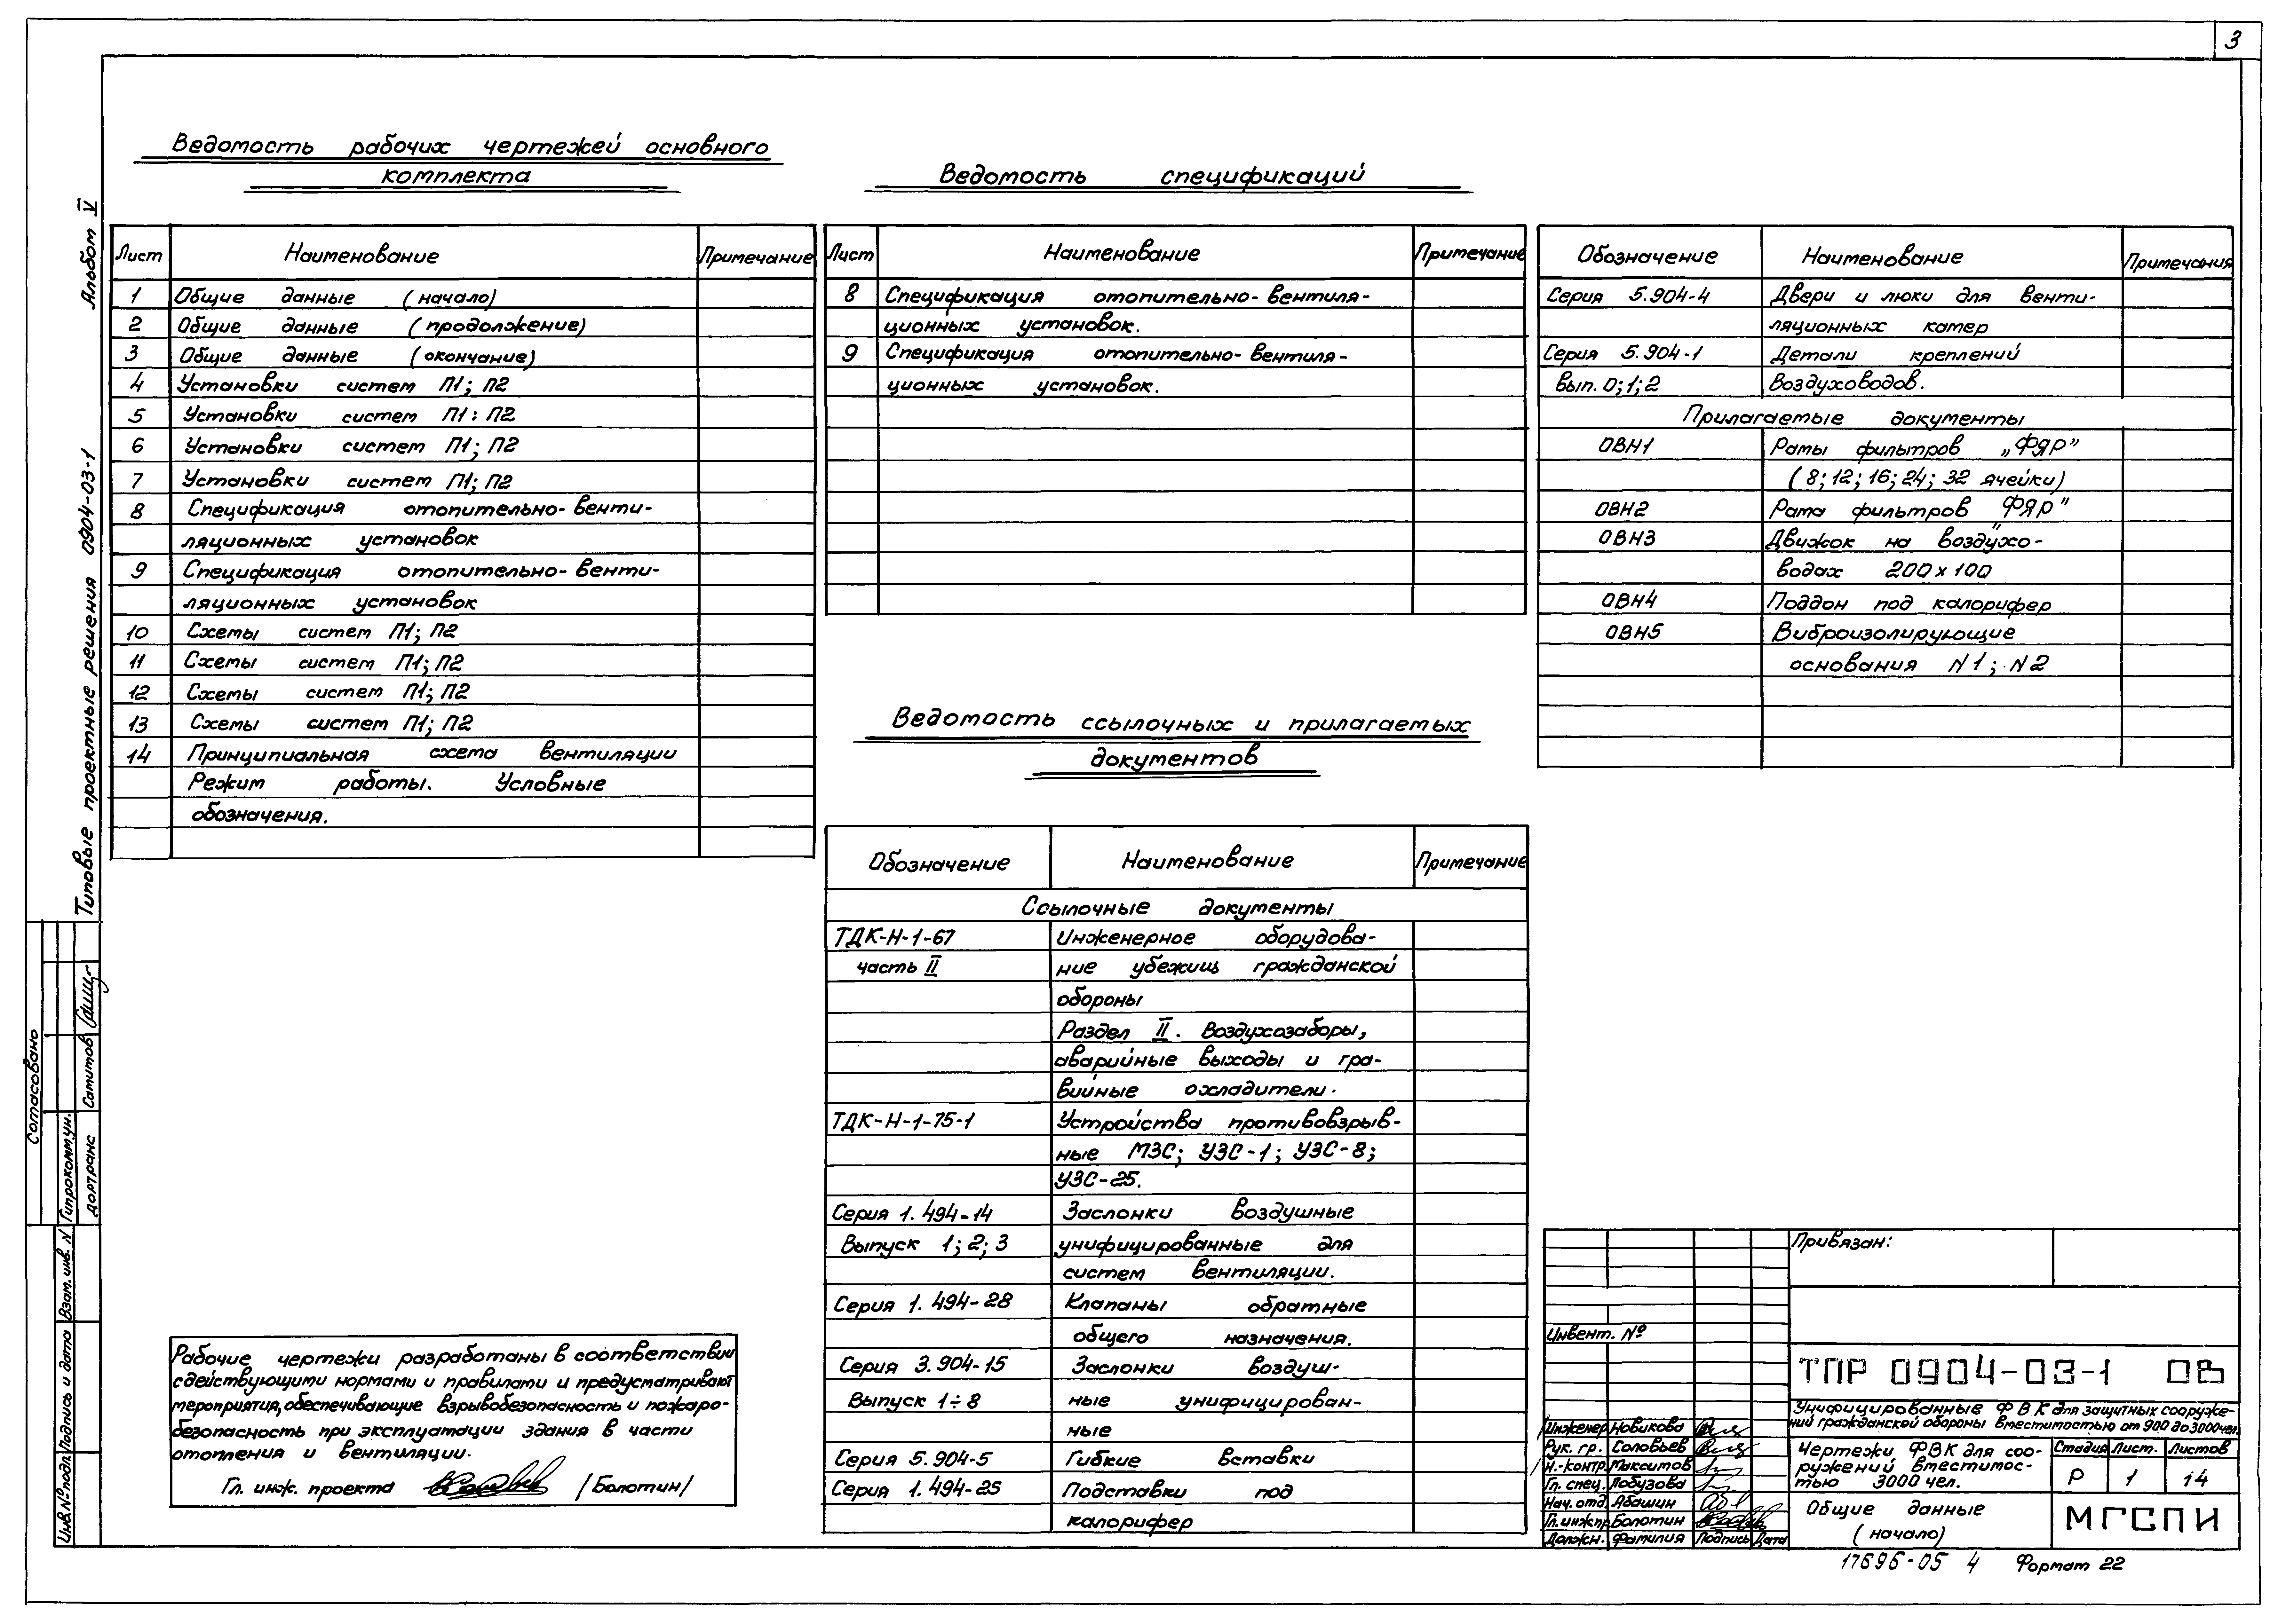 3
Ведомость рабочих чертежей основного
комплекта
Лист Наименование Примечание
1 Общие данные (начало)
2 Общие данные (продолжение)
3 Общие данные (окончание)
4 Установки систем П1; П2
5 Установки систем П1: П2
6 Установки систем П1; П2
7 Установки систем П1; П2
8 Спецификация отопительно-венти-
ляционных установок
9 Спецификация отопительно-венти-
ляционных установок
10 Схемы систем П1; П2
11 Схемы систем П1; П2
12 Схемы систем П1; П2
13 Схемы систем П1; П2
14 Принципиальная схема вентиляции
Режим работы. Условные
обозначения.
Ведомость спецификаций
Лист Наименование Примечание
8 Спецификация отопительно-вентиля-
ционных установок.
9 Спецификация отопительно-вентиля-
ционных установок.
Ведомость ссылочных и прилагаемых
документов
Обозначение Наименование Примечание
Ссылочные документы
ТДК-Н-1-67 Инженерное оборудова-
часть II ние убежищ гражданской
обороны
Раздел II. Воздухозаборы,
аварийные выходы и гра-
вийные охладители.
ТДК-Н-1-75-1 Устройства противовзрыв-
ные МЗС; УЗС-1; УЗС-8;
УЗС-25.
Серия 1.494-14 Заслонки воздушные
Выпуск 1; 2; 3 унифицированные для
систем вентиляции.
Серия 1.494-28 Клапаны обратные
общего назначения.
Серия 3.904-15 Заслонки воздуш-
Выпуск 1÷8 ные унифицирован-
ные
Серия 5.904-5 Гибкие вставки
Серия 1.494-25 Подставки под
калорифер
Обозначение Наименование Примечания
Серия 5.904-4 Двери и люки для венти-
ляционных камер
Серия 5.904-1 Детали креплений
Вып. 0; 1; 2 воздуховодов.
Прилагаемые документы
ОВН1 Рамы фильтров „ФЯР"
(8; 12; 16; 24; 32 ячейки)
ОВН2 Рама фильтров „ФЯР"
ОВН3 Движок на воздухо-
водах 200×100
ОВН4 Поддон под калорифер
ОВН5 Виброизолирующие
основания N1; N2
Рабочие чертежи разработаны в соответствии
с действующими нормами и правилами и предусматривают
мероприятия, обеспечивающие взрывобезопасность и пожаро-
безопасность при эксплуатации здания в части
отопления и вентиляции.
Гл. инж. проекта /Болотин/
Альбом V
Типовые проектные решения 0904-03-1
Согласовано
Гипрокоммун.
дортранс Самитов
Взам. инв. N
Подпись и дата
Инв.№подл.
Привязан:
Инвент. №
ТПР 0904-03-1 ОВ
Унифицированные ФВК для защитных сооруже-
ний гражданской обороны вместимостью от 900 до 3000чел.
Инженер Новикова
Рук. гр. Соловьев
Н.-контр. Максимов
Гл. спец. Лобузова
Нач. отд. Абашин
Гл.инж.пр. Болотин
Должн. Фамилия Подпись Дата
Чертежи ФВК для соо-
ружений вместимос-
тью 3000 чел.
Стадия Лист. Листов
Р 1 14
Общие данные
(начало)
МГСПИ
17696-05 4 Формат 22